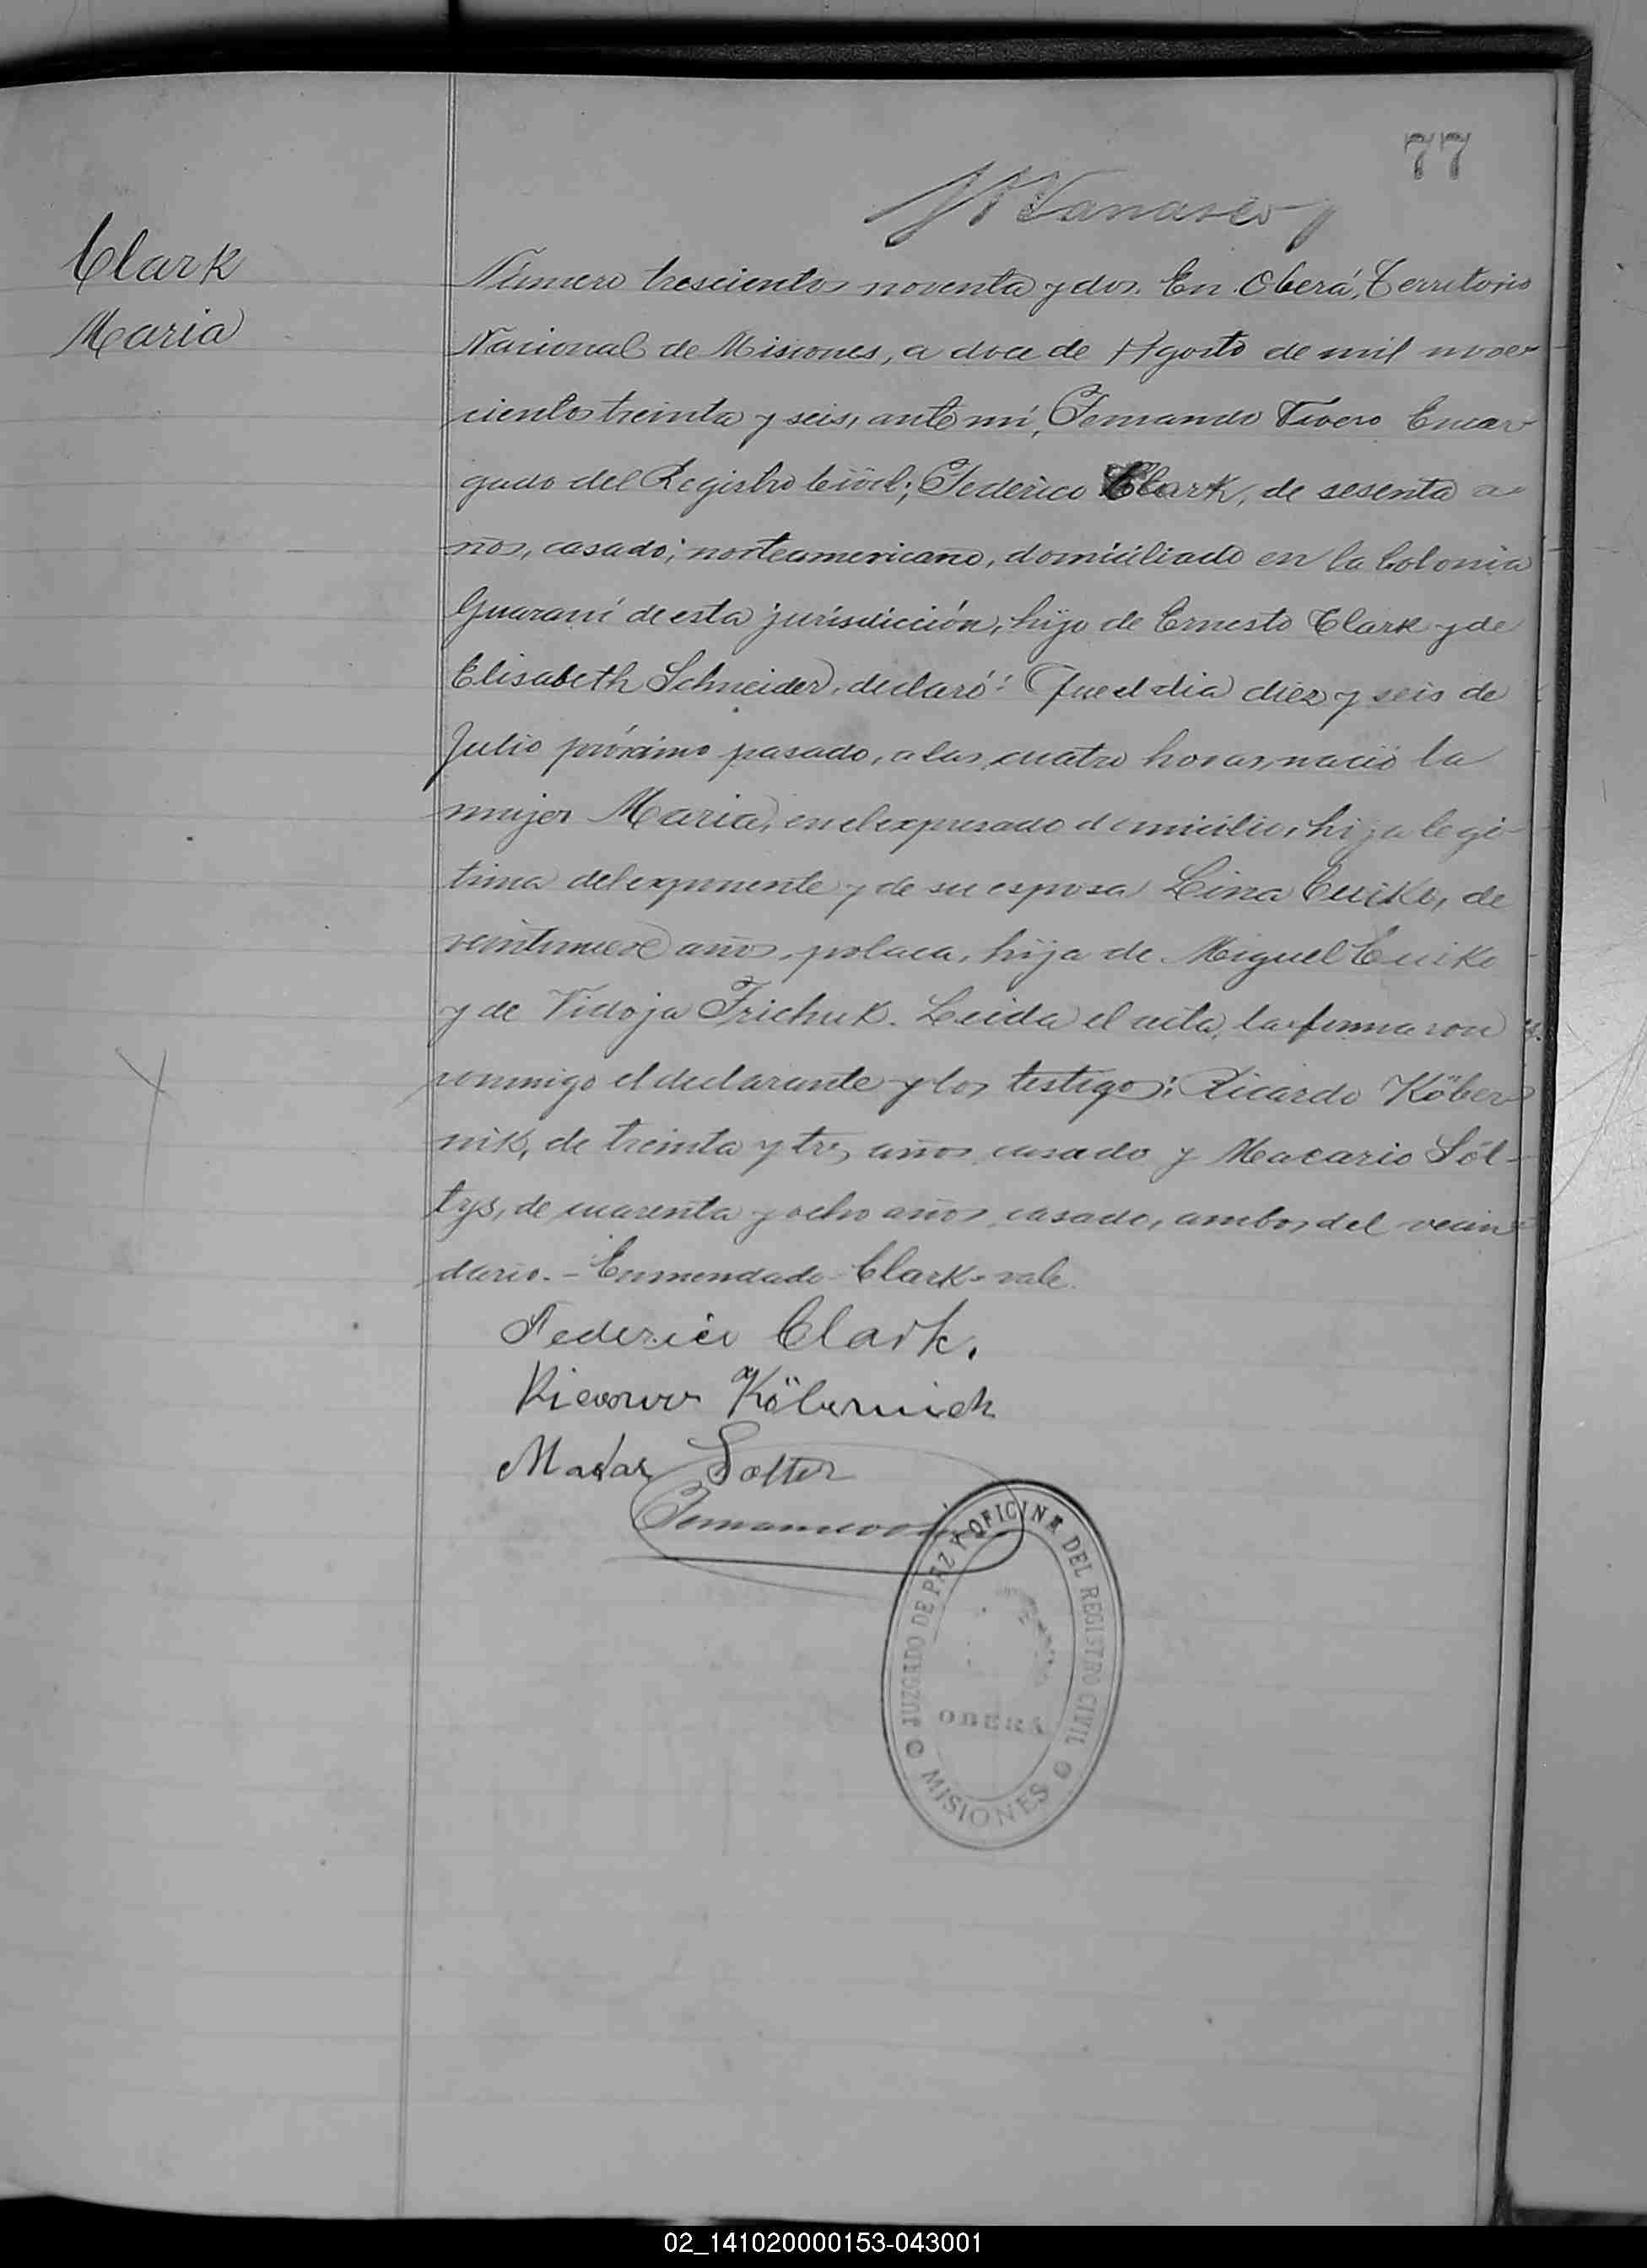 77
Clark
Maria
Número trescientos noventa y dos. En Oberá, Territorio
Nacional de Misiones, a doce de Agosto de mil nove-
cientos treinta y seis, ante mí, Fernando Vivero Encar-
gado del Registro Civil; Federico Clark, de sesenta a-
ños, casado; norteamericano, domiciliado en la Colonia
Guaraní de esta jurisdicción, hijo de Ernesto Clark y de
Elisabeth Schneider, declaró: Que el dia diez y seis de
Julio próximo pasado, a las cuatro horas, nació la
mujer Maria, en el expresado domicilio, hija legí-
tima del exponente y de su esposa Lina Cuiko, de
veintinueve años, polaca, hija de Miguel Cuiko
y de Vidoja Frichuk. Leida el acta, la firmaron
conmigo el declarante y los testigos: Ricardo Köber-
nik, de treinta y tres años casado y Macario Sól-
tys, de cuarenta y ocho años, casado, ambos del vecin-
dario. - Enmendado - Clark - vale.
Federico Clark.
Köbernick
JUZGADO DE PAZ Y OFICINA DEL REGISTRO CIVIL
OBERÁ
MISIONES
02_141020000153-043001